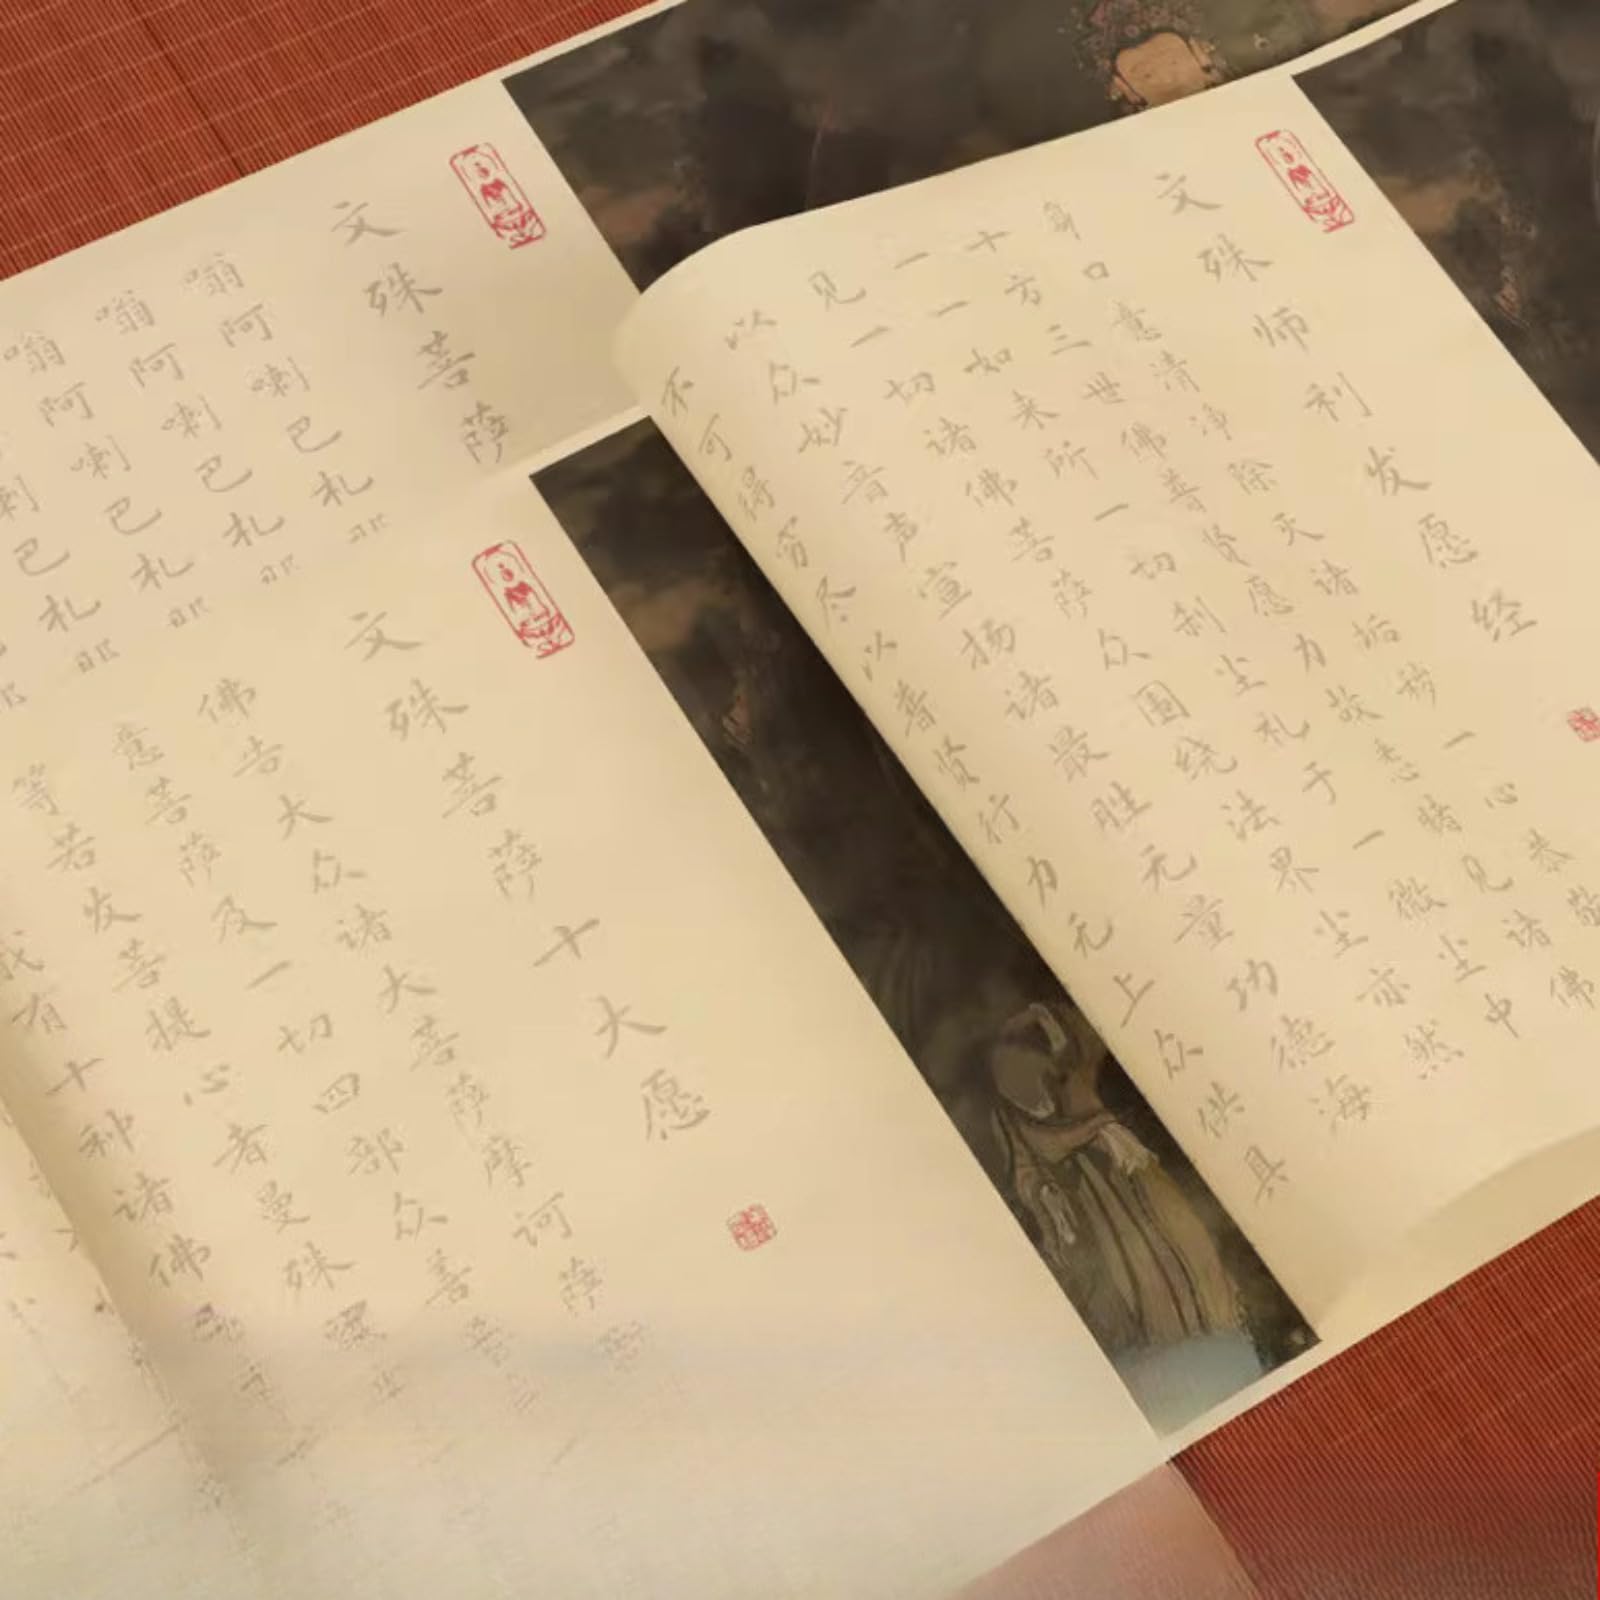 文殊师利发愿经
身口意清净除灭诸垢秽一心恭敬
十方三世佛普贤愿力故悉睹见诸佛
一一如来所一切刹尘礼于一微尘中
见一切诸佛菩萨众围绕法界尘亦然
以众妙音声宣扬诸最胜无量功德海
不可得穷尽以普贤行力无上众供具
文殊菩萨
嗡阿喇巴札
嗡阿喇巴札
嗡阿喇巴札
文殊菩萨十大愿
佛告大众诸大菩萨摩诃萨
意菩萨及一切四部众善
等若发菩提心者曼殊
我有十种诸佛